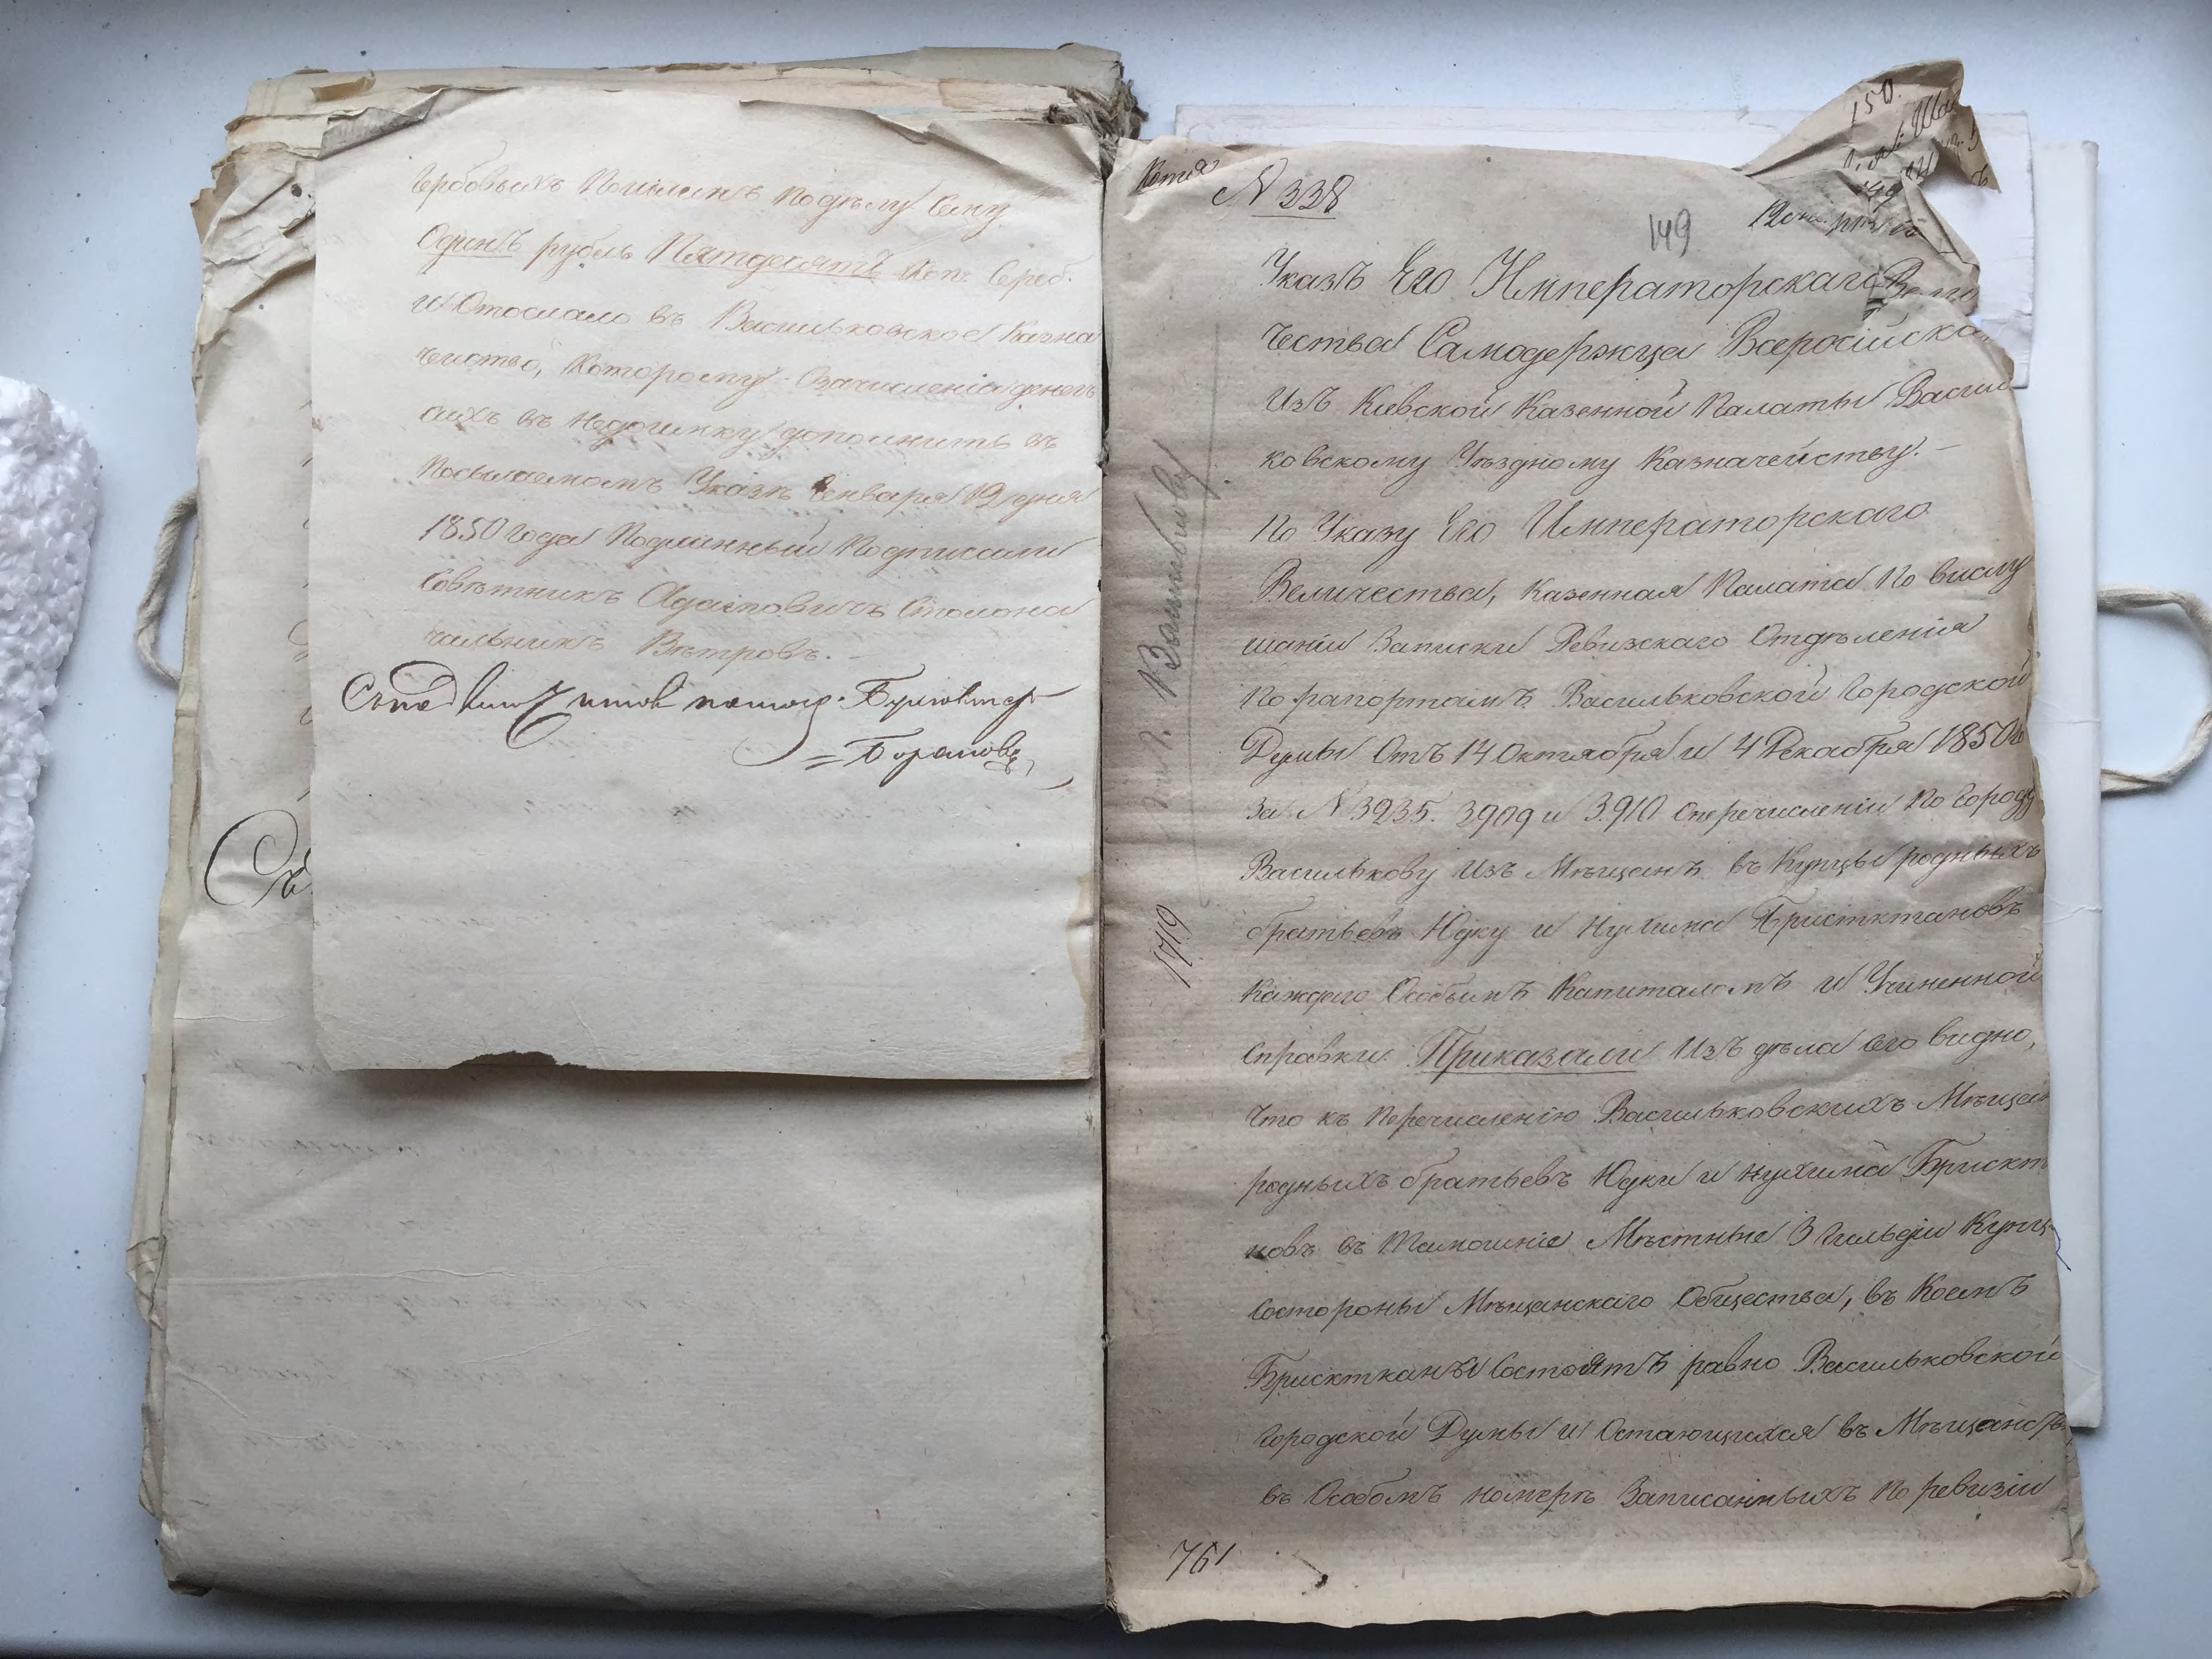 гербовыхъ пошлинъ по дѣлу сему
Одинъ рубль Пятдесятъ коп. Сереб.
и Отослало въ Васильковское Казна
чейство, Которому Озачисленіи денегъ
сихъ въ Недоимку дополнить въ
Посылаемомъ Указѣ Генваря 19 дня
1850 года Подлинный Подписали
Совѣтникъ Столона
чальникъ Вѣтровъ. –
Бухгалтеръ
Копія
N 338
150.
149
Указъ Его Императорскаго Вели
чества Самодержца Всеросійска
Изъ Кіевской Казенной Палаты Василь
ковскому Уѣздному Казначейству. –
По Указу Его Императорскаго
Величества, Казенная Палата По выслу
шаніи Записки Ревизскаго Отдѣленія
По рапортамъ Васильковской Городской
Думы Отъ 14 Октября и 4 Декабря 1850 г
За N 3235. 3909 и 3910 Оперечисленіи По Городу
Василькову Изъ Мѣщанъ въ Купцы родныхъ
братьевъ Юдку и Нухима
Каждаго Особымъ Капиталомъ и Учиненной
Справки. Приказали Изъ дѣла сего видно,
Что къ Перечисленію Васильковскихъ Мѣщан
родныхъ братьевъ Юдки и Нухима Брискт
новъ въ Тамошніе Мѣстные 3 Гильдіи Купц
Состороны Мѣщанскаго Общества, въ Коемъ
Брисктканы Состоятъ равно Васильковской
Городской Думы и Остающихся въ Мѣщанств
въ Особомъ номерѣ Записанныхъ По ревизіи
1719
761